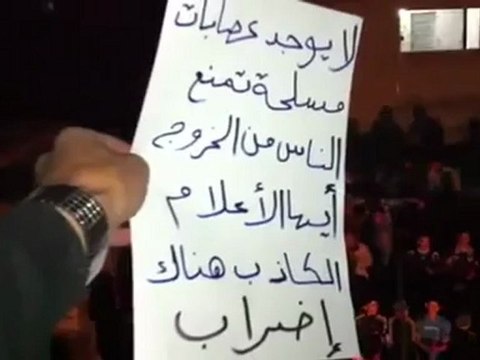 لا يوجد عصابات
مسلحة تمنع
الناس من الخروج
أيها الأعلام
الكاذب هناك
إضراب